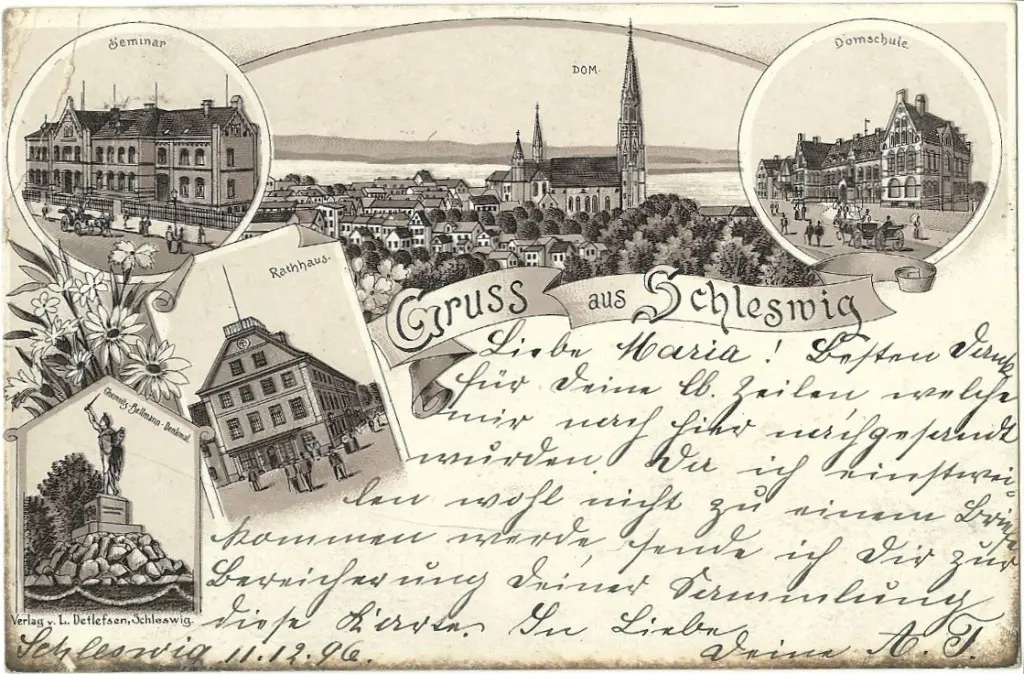 Seminar
DOM.
Domschule.
Rathhaus.
Gruss aus Schleswig
Chemnitz-Bellmann-Denkmal.
Liebe Maria! Besten Dank
für Deine lb. Zeilen welche
mir nach hier nachgesandt
wurden. Da ich einstwei-
len wohl nicht zu einem Briefe
kommen werde, sende ich Dir zur
Bereicherung Deiner Sammlung
diese Karte. In Liebe
Deine A. T.
Verlag v. L. Detlefsen, Schleswig.
Schleswig 11.12.96.